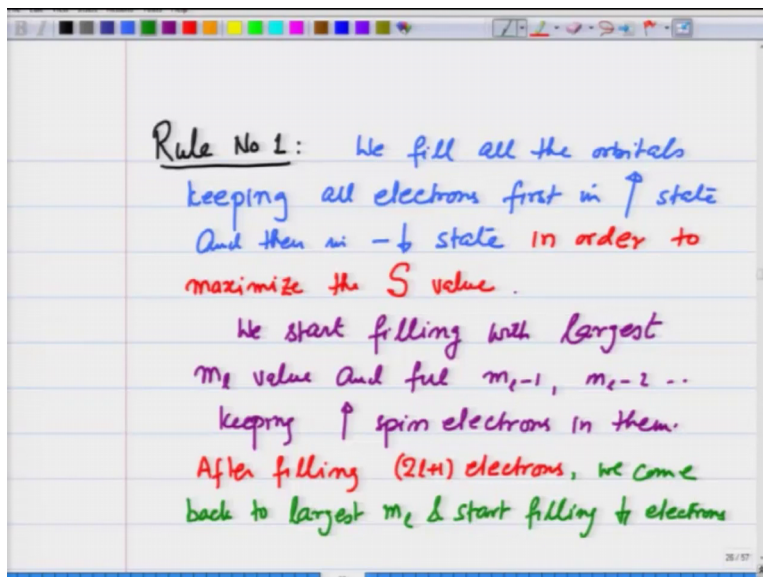 Rule No 1: We fill all the orbitals
keeping all electrons first in ↑ state
And then in - ↓ state in order to
maximize the S value.
We start filling with largest
mₗ value and fill mₗ-1, mₗ-2 ..
keeping ↑ spin electrons in them.
After filling (2l+1) electrons, we come
back to largest mₗ & start filling ↓ electrons
26 / 57